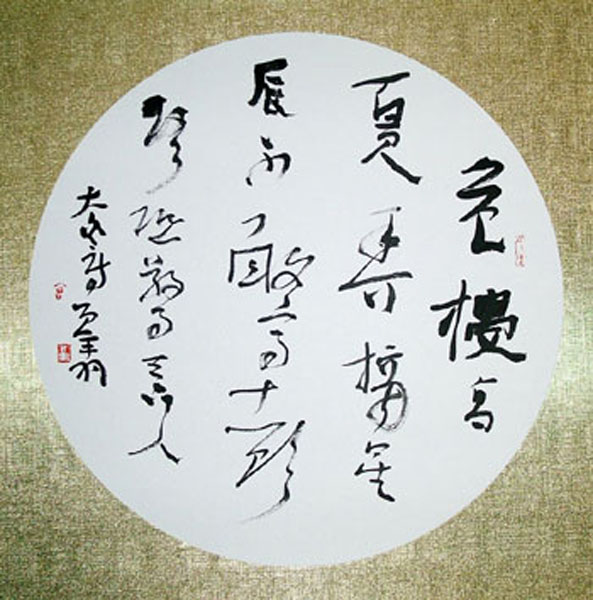 危樓高
百尺手可摘星
辰不敢高聲
語恐驚天上人